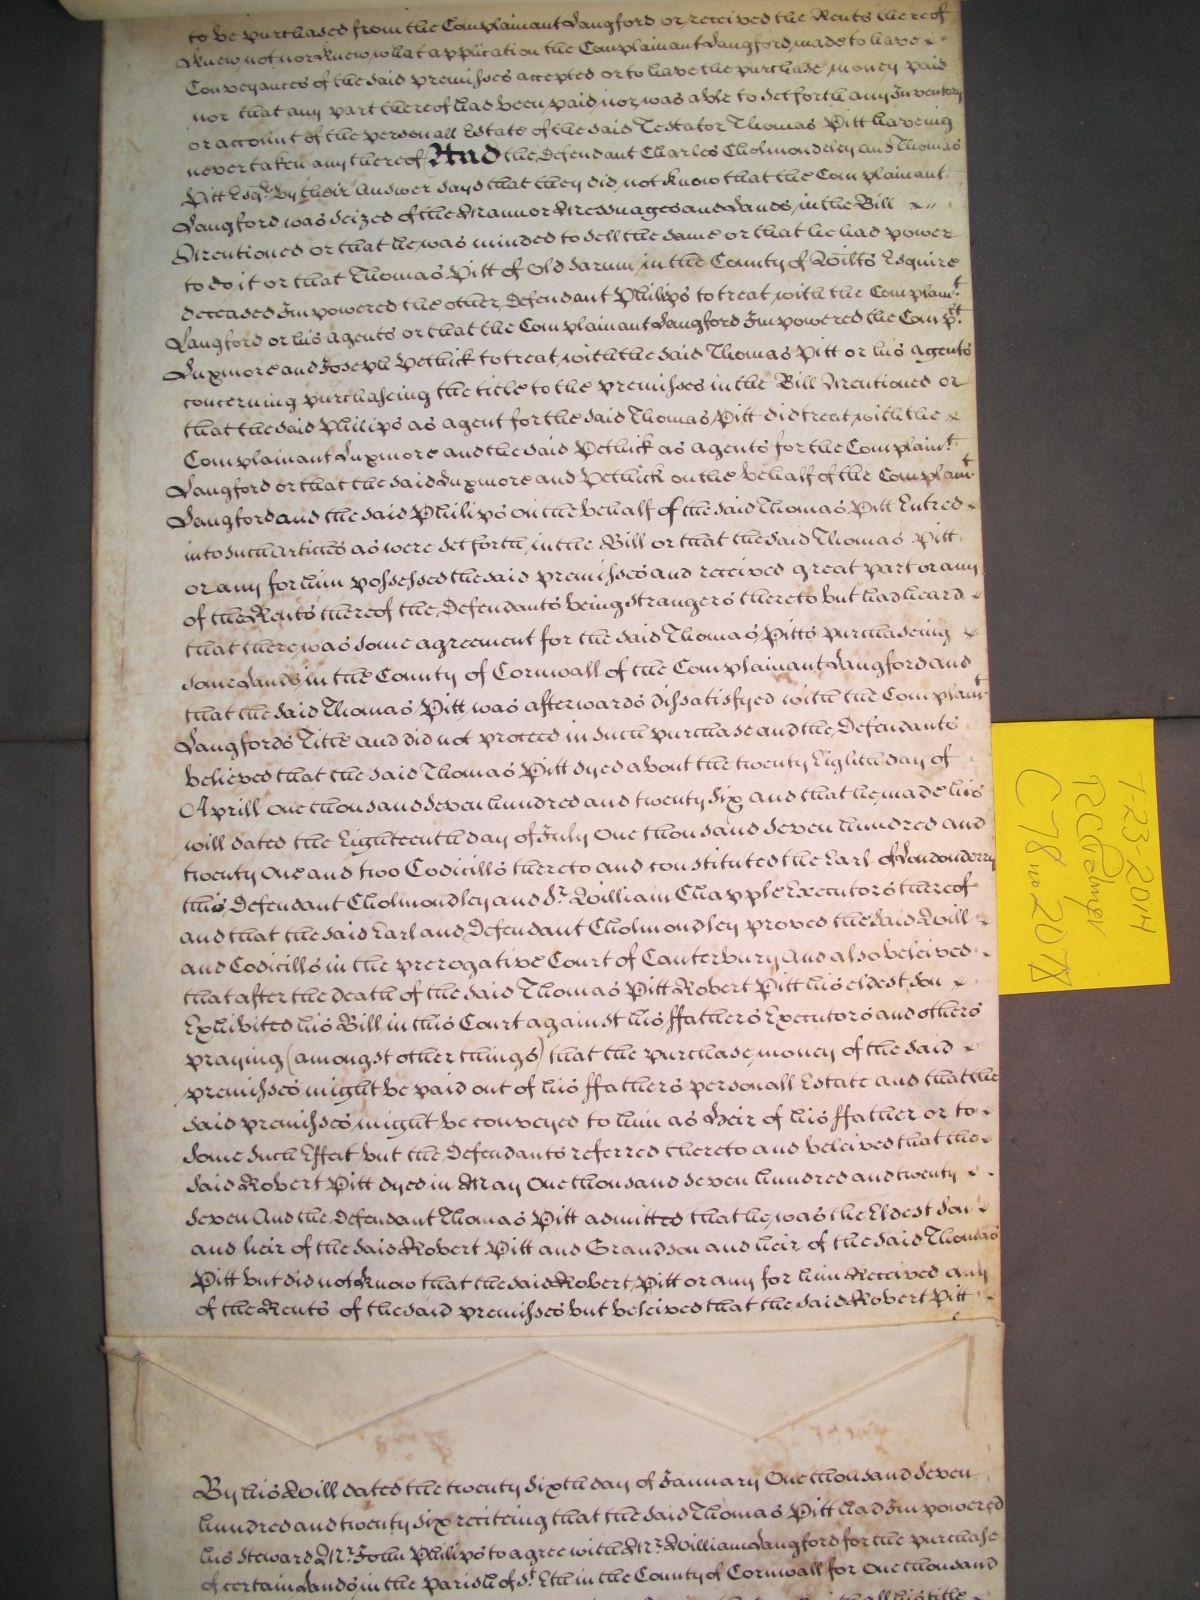 to be purchased from the Complainant Langford or received the Rents thereof
Knew not nor knew what application the Complainant Langford made to have
Conveyances of the said premisses accepted or to have the purchase money paid
nor that any part thereof had been paid nor was able to set forth any Inventory
or account of the personall Estate of the said Testator Thomas Pitt haveing
never taken any thereof And the Defendant Charles Cholmondeley and Thomas
Pitt Esqr. by their Answer says that they did not know that the Complainant
Langford was seized of the Mannor Messuages and Lands in the Bill
Mentioned or that he was minded to sell the same or that he had power
to do it or that Thomas Pitt of Old Sarum in the County of Wilts Esquire
deceased Impowered the other Defendant Philips to treat with the Complain.t
Langford or his agents or that the Complainant Langford Impowered the Comp.t
Luxmore and Joseph Pethick to treat with the said Thomas Pitt or his agents
concerning purchaseing the title to the premisses in the Bill Mentioned or
that the said Philips as agent for the said Thomas Pitt did treat with the
Complainant Luxmore and the said Pethick as agents for the Complain.t
Langford or that the said Luxmore and Pethick on the behalf of the Complain.t
Langford and the said Philips on the behalf of the said Thomas Pitt Entred
into such Articles as were set forth in the Bill or that the said Thomas Pitt
or any for him possessed the said premisses and received great part or any
of the Rents thereof the Defendants being strangers thereto but had heard
that there was some agreement for the said Thomas Pitts purchaseing
some Lands in the County of Cornwall of the Complainant Langford and
that the said Thomas Pitt was afterwards dissatisfyed with the Complain.t
Langfords Title and did not proceed in such purchase and the Defendants
believed that the said Thomas Pitt dyed about the twenty Eighth day of
Aprill One thousand seven hundred and twenty six and that he made his
will dated the Eighteenth day of July One thousand seven hundred and
twenty One and two Codicills thereto and constituted the Earl of Londonderry
this Defendant Cholmondley and Sr. William Chapple Executors thereof
and that the said Earl and Defendant Cholmondley proved the said Will
and Codicills in the prerogative Court of Canterbury And also beleived
that after the death of the said Thomas Pitt Robert Pitt his eldest son
Exhibited his Bill in this Court against his ffathers Executors and others
praying (amongst other things) that the purchase money of the said
premisses might be paid out of his ffathers personall Estate and that the
said premisses might be conveyed to him as Heir of his ffather or to
some such Effect but the Defendants referred thereto and beleived that the
said Robert Pitt dyed in May One thousand seven hundred and twenty
seven And the Defendant Thomas Pitt admitted that he was the Eldest son
and heir of the said Robert Pitt and Grandson and heir of the said Thomas
Pitt but did not know that the said Robert Pitt or any for him Received any
of the Rents of the said premisses but beleived that the said Robert Pitt
By his Will dated the twenty sixth day of January One thousand seven
hundred and twenty six reciteing that the said Thomas Pitt had Impowered
his Steward Mr. John Philips to agree with Mr. William Langford for the purchase
of certain Lands in the Parish of St. Eth in the County of Cornwall for One thousand
all his title
7-23-2014
C 78 no 2078